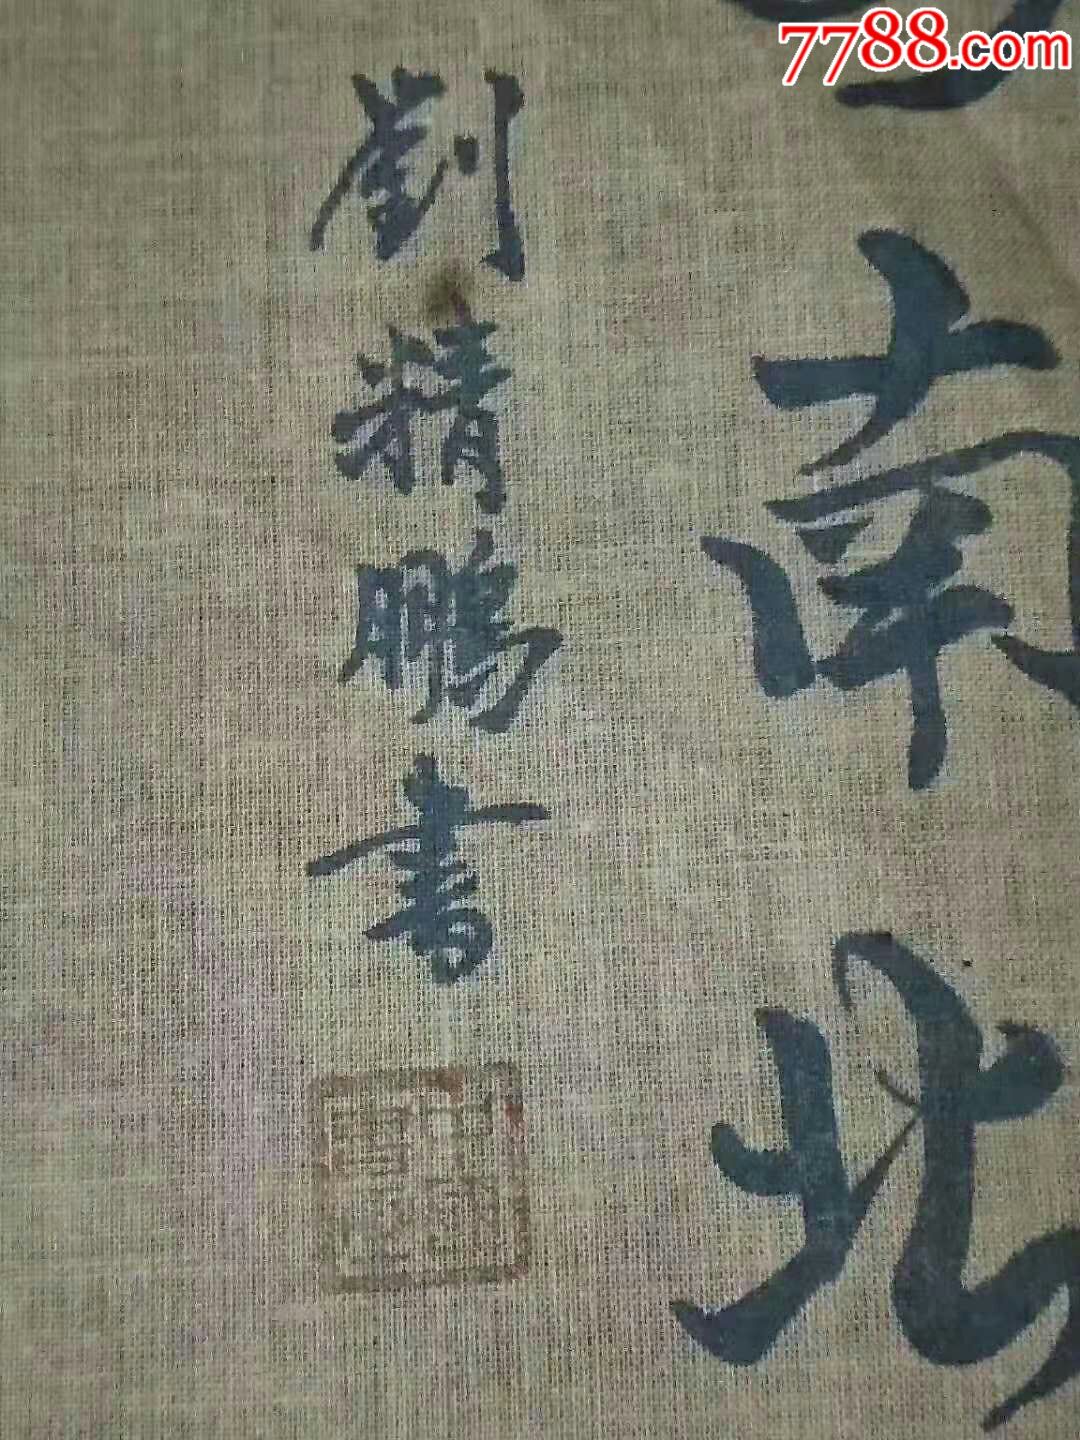 7788.com
南北
劉精鵬書